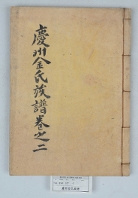 慶州金氏族譜卷之二